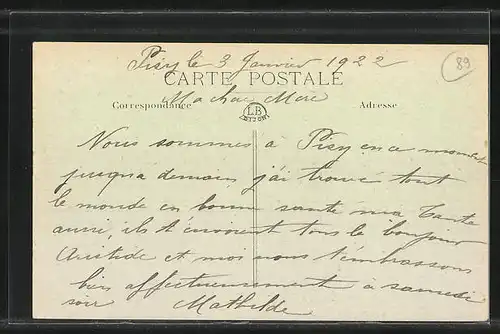 Pisy le 3 Janvier 1922
89
CARTE POSTALE
Ma chère Mère
Correspondance
LB
DIJON
Adresse
Nous sommes à Pisy en ce moment
jusqua demain, j'ai trouvé tout
le monde en bonne santé ma Tante
aussi, ils t'envoient tous le bonjour
Aristide et moi nous t'embrassons
bien affectueusement à samedi
soir Mathilde